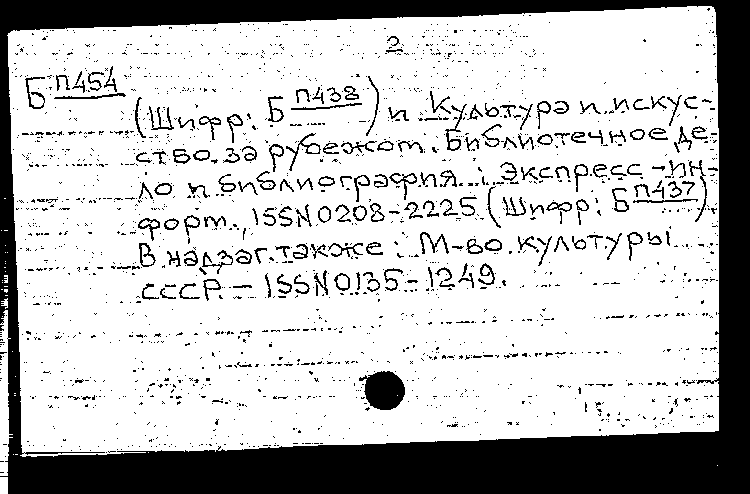 2
Б П454
(Шифр: Б П438) и Культура и искус-
ство за рубежом. Библиотечное де-
ло и библиография : Экспресс-ин-
форм., ISSN 0208-2225 (Шифр: Б П437).
В надзаг. также: М-во культуры
СССР. – ISSN 0135-1249.